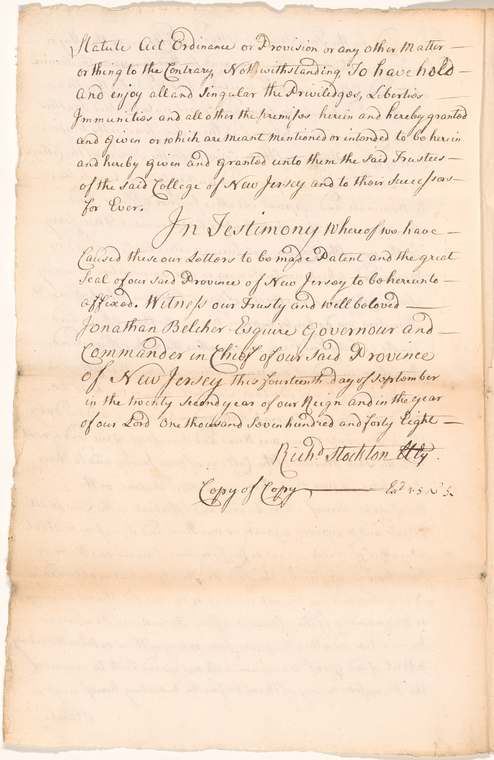 Statute Act Ordinance or Provision or any other Matter —
or thing to the Contrary, Notwithstanding, To have hold —
and enjoy all and Singular the Priviledges, Liberties —
Immunities and all other the premises herein and hereby granted
and given or which are meant mentioned or intended to be herein
and hereby given and granted unto them the said Trustees —
of the said College of New Jersey and to their Successors —
for Ever.
In Testimony Whereof we have —
Caused these our Letters to be made Patent and the great
Seal of our said Province of New Jersey to be hereunto —
affixed. Witness our Trusty and well beloved —
Jonathan Belcher Esquire Governour and —
Commander in Chief of our said Province
of New Jersey this fourteenth day of September
in the twenty second year of our Reign and in the year
of our Lord One thousand Seven hundred and forty Eight —
Richd. Stockton
Copy of Copy —